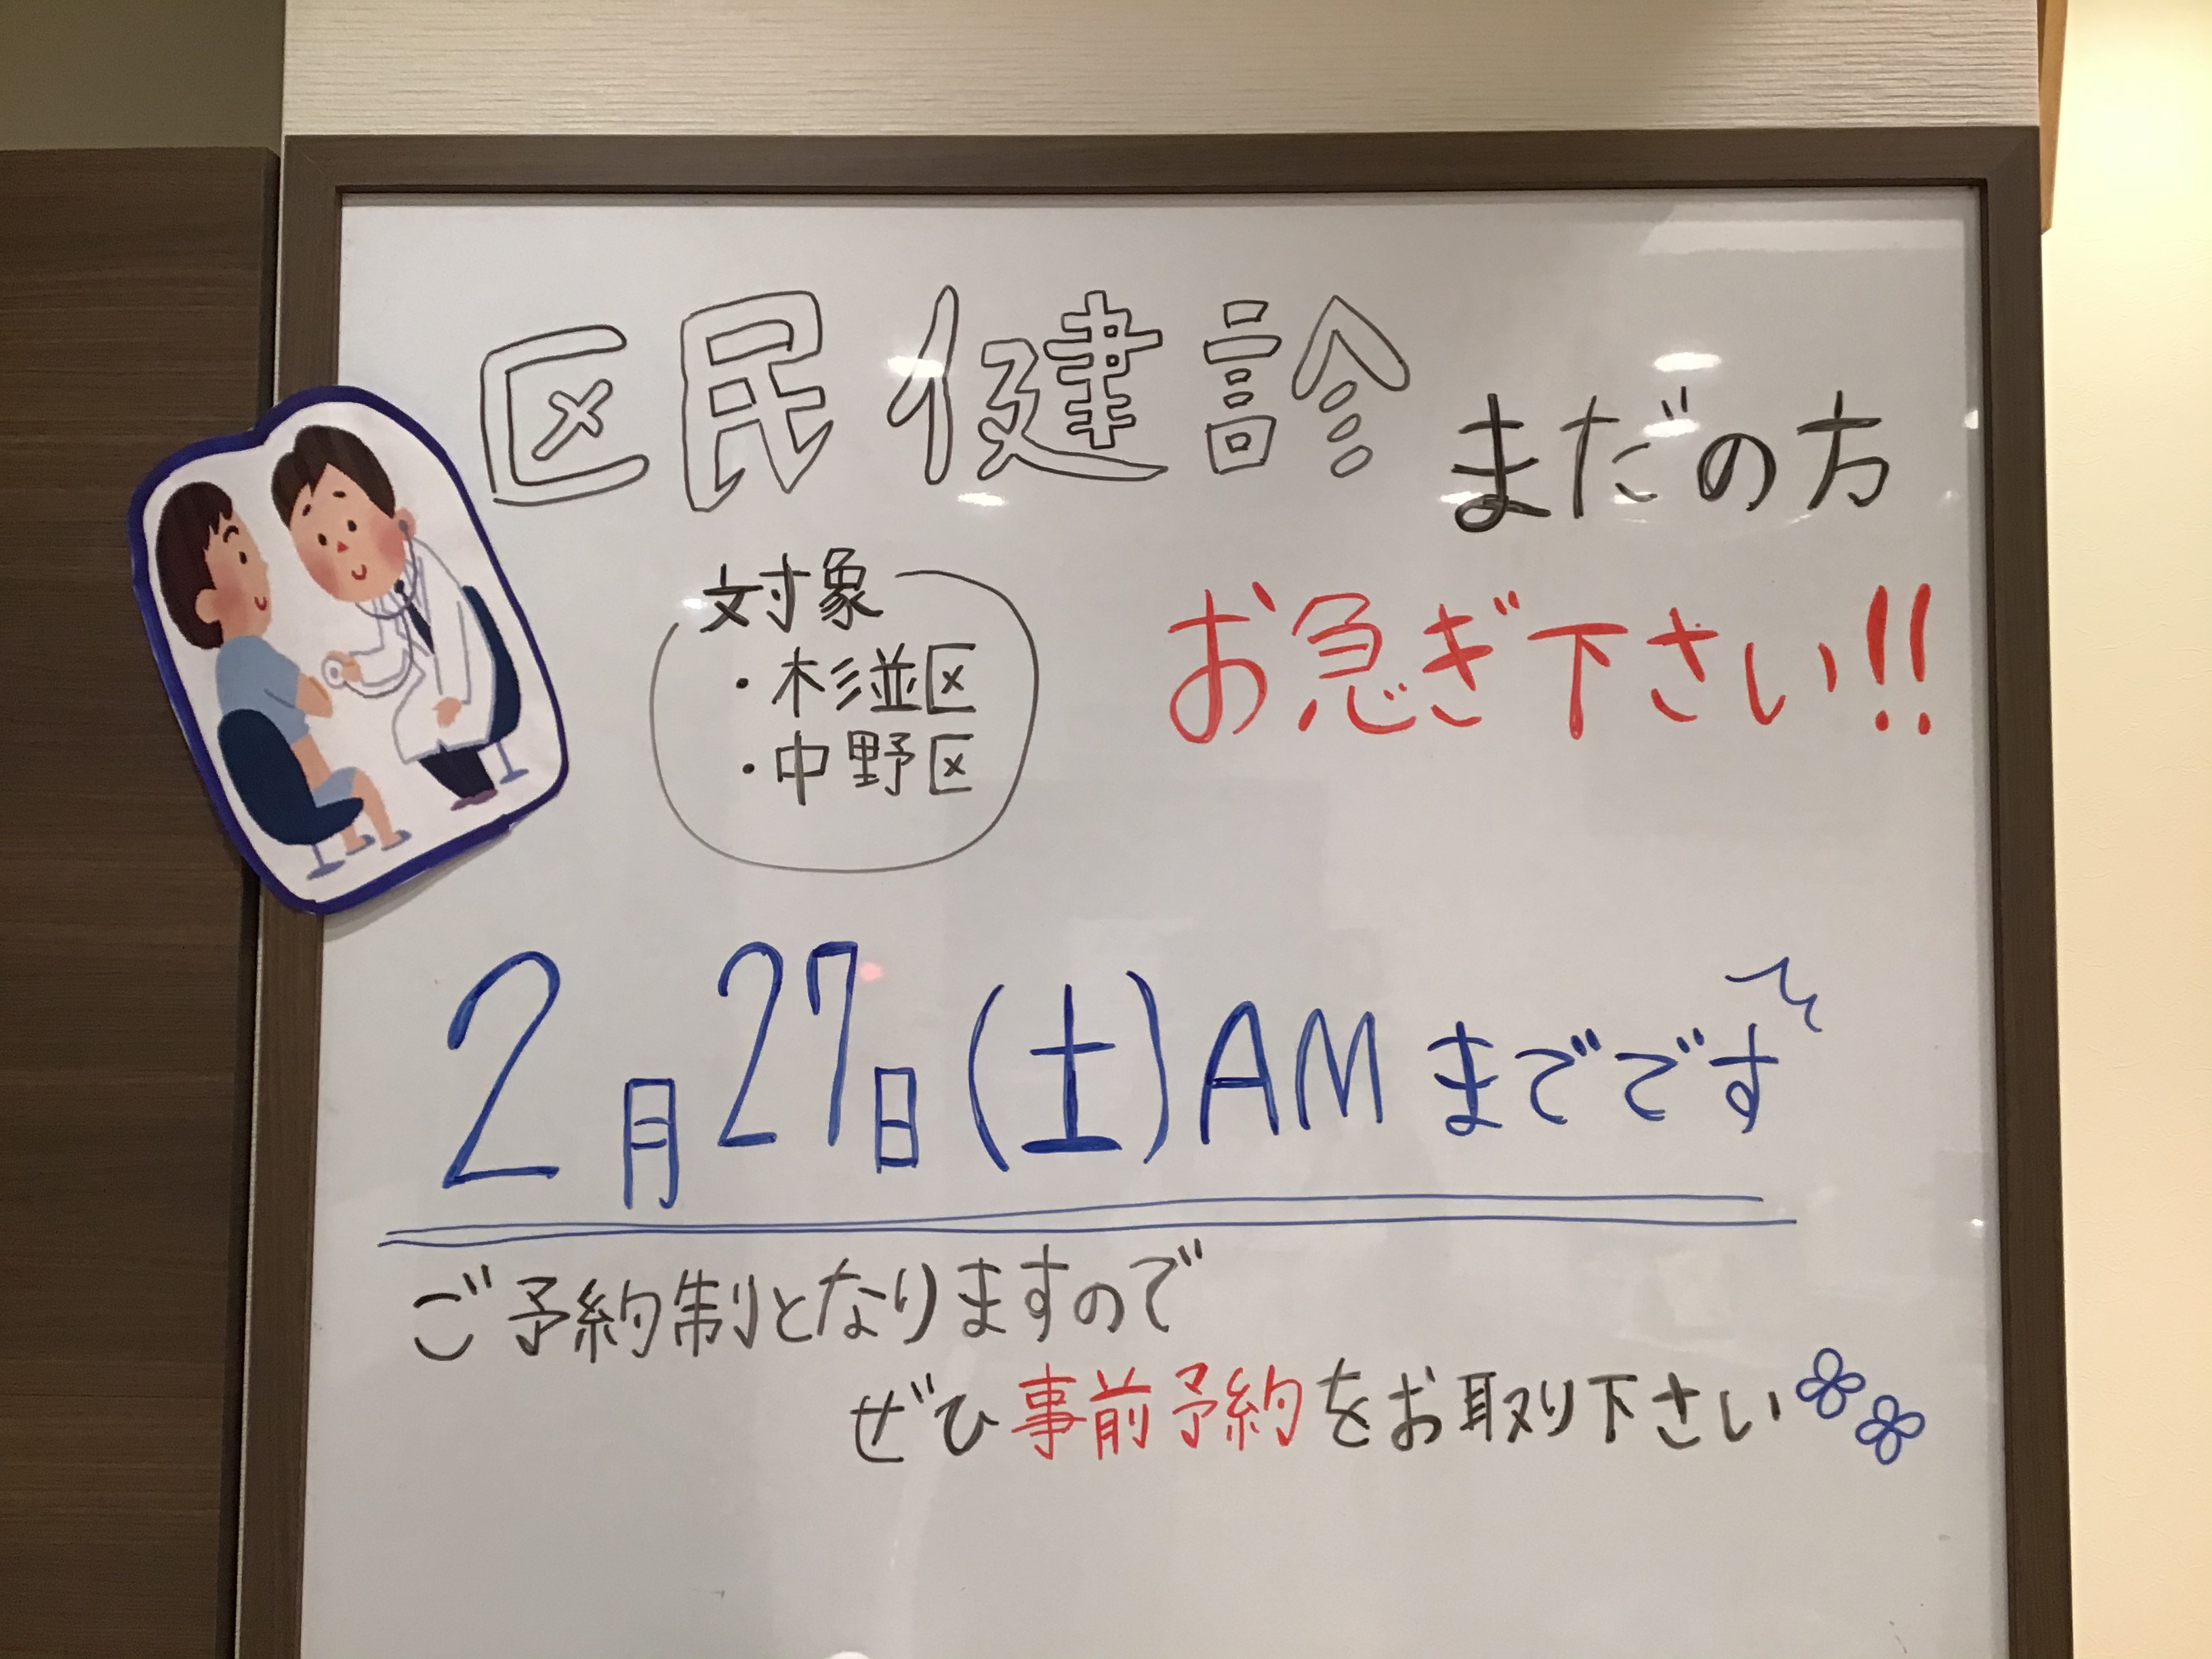 区民健診まだの方
お急ぎ下さい!!
対象
・杉並区
・中野区
2月27日(土)AMまでです
ご予約制となりますので
ぜひ事前予約をお取り下さい